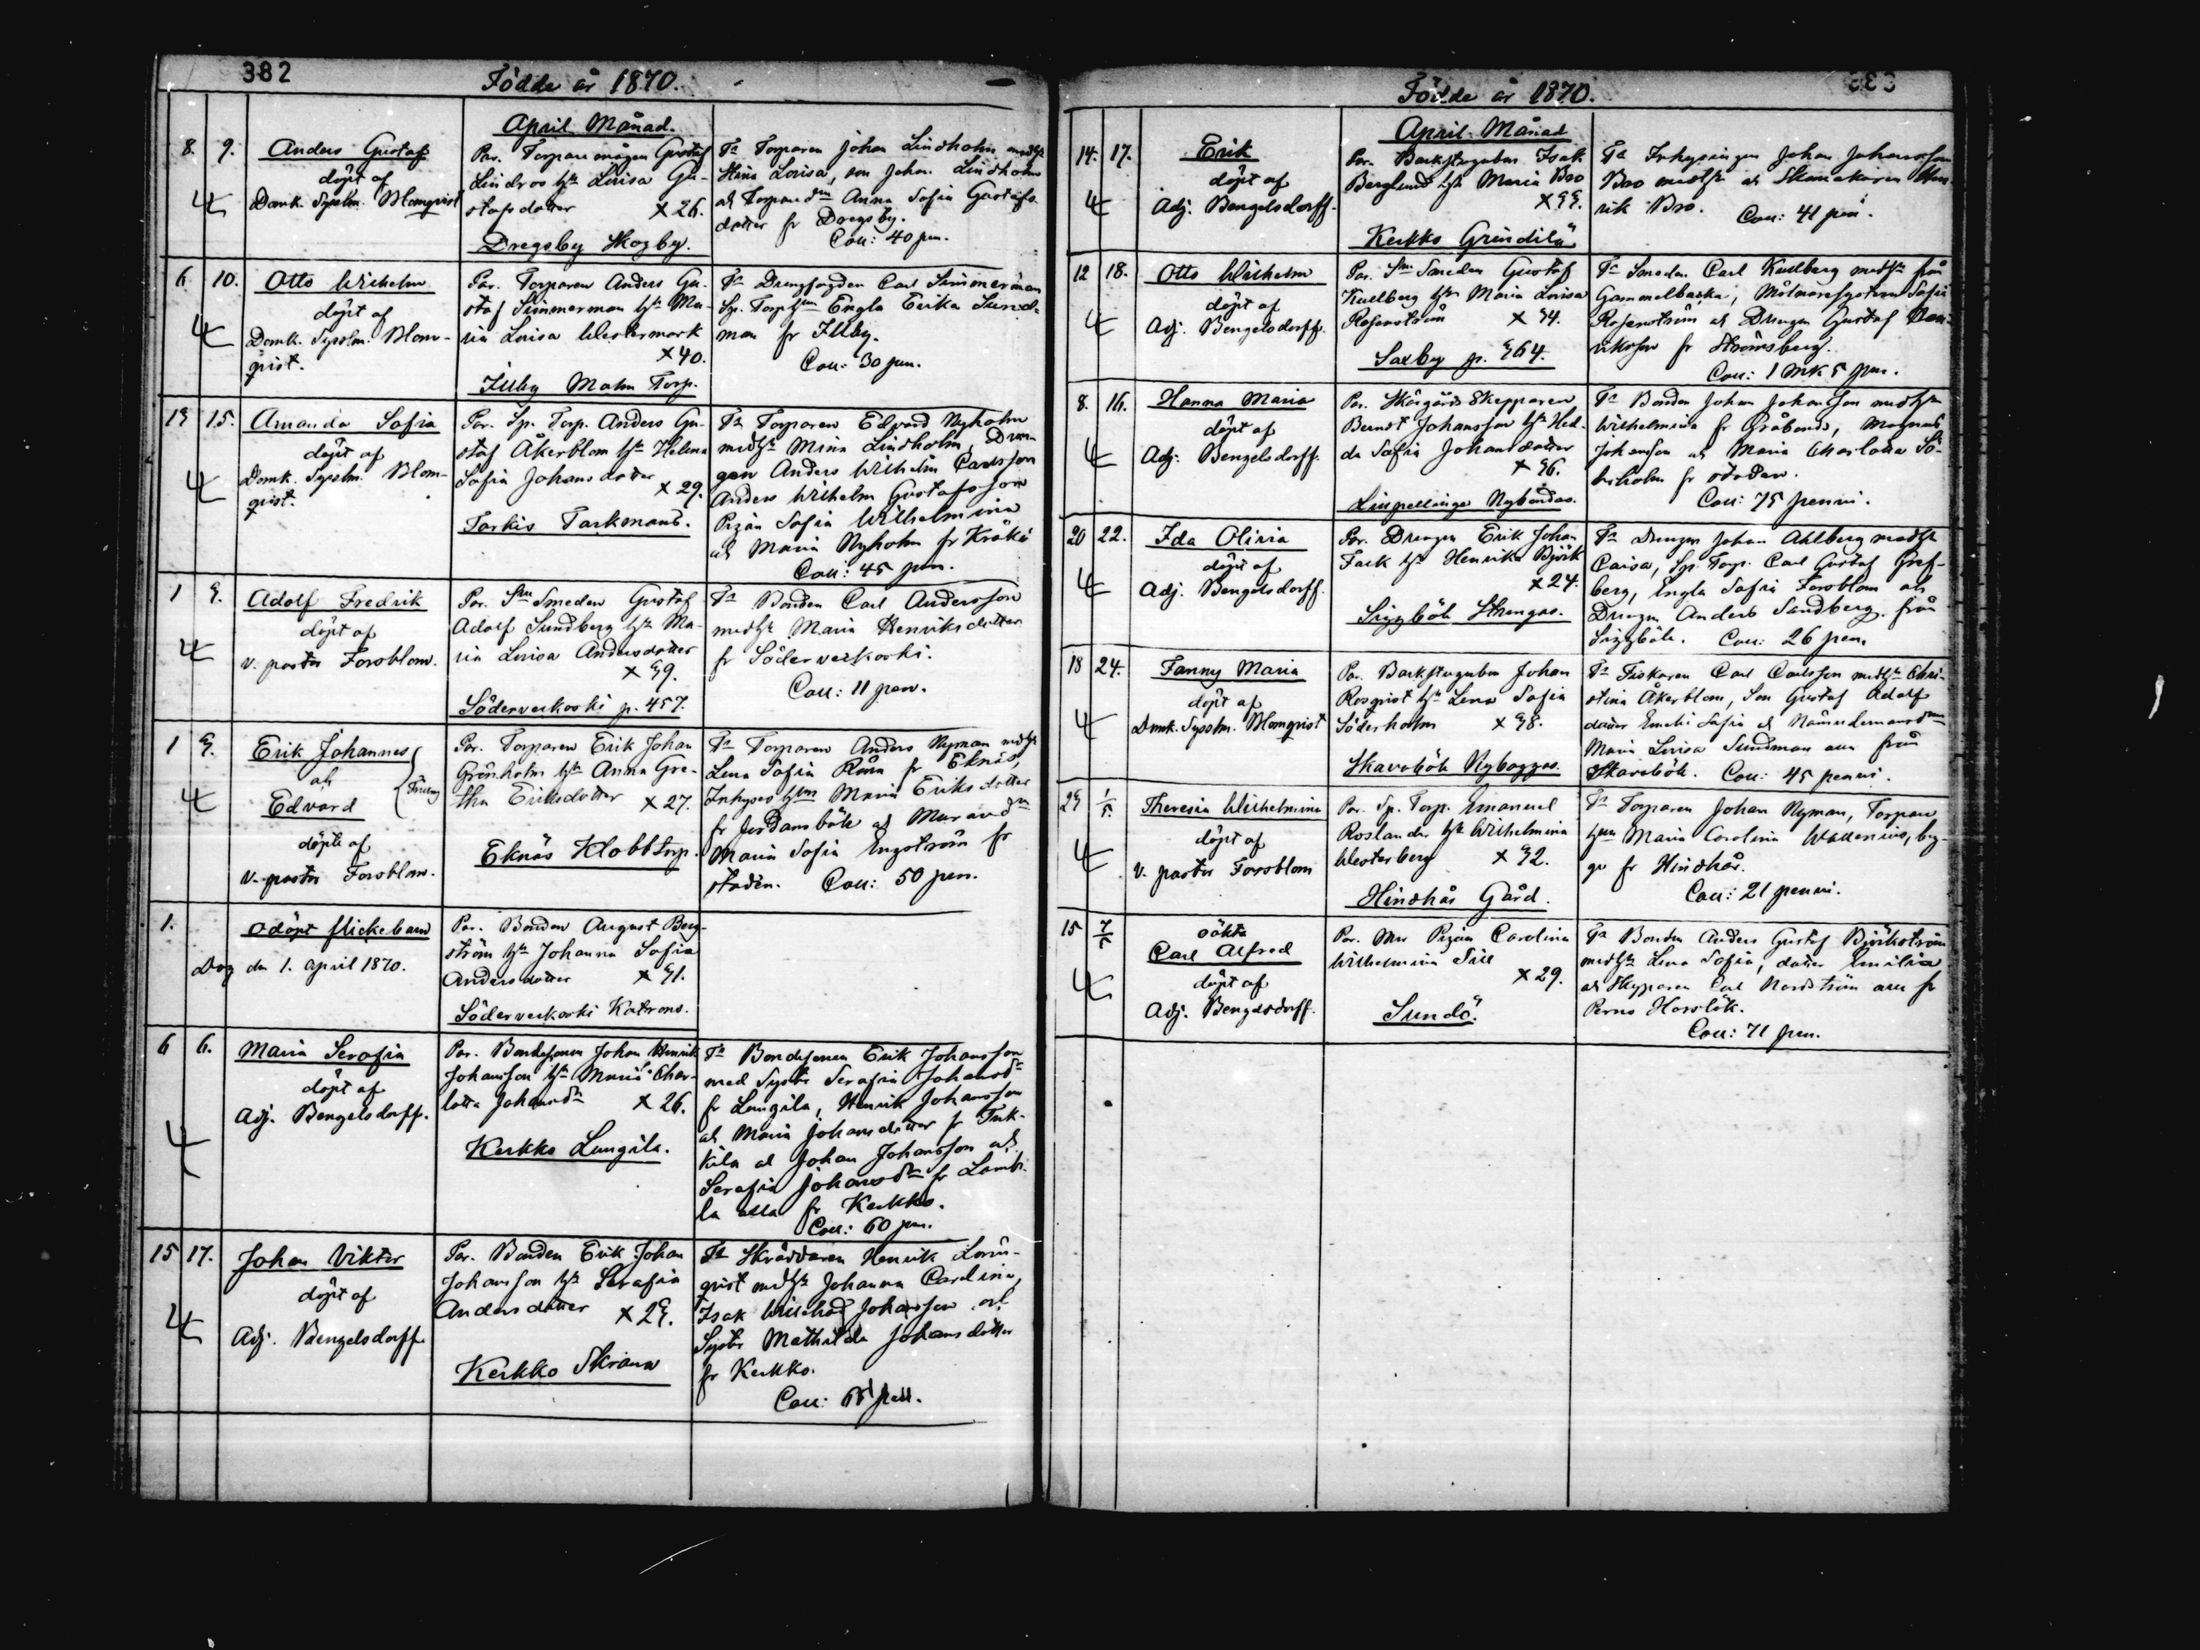 382
Födde år 1870.
April Månad.
8. 9. Anders Gustaf
döpt af
Domk. Sysslm. Blomqvist
Par. Torparemågen Gustaf
Lindroos hu Lovisa Gu-
stafsdotter x 26.
Drägsby Skogby.
Fr Torparen Johan Lindholm medh
Stina Lovisa, son Johan Lindholm
och Torpared Anna Sofia Gustafs
dotter fr Drägsby.
Coll: 40 pen.
6 10. Otto Wilhelm
döpt af
Domk. Sysslm. Blom-
qvist.
Par. Torparen Anders Gu-
staf Simmerman hu Ma-
ria Lovisa Westermark
x 40.
Illby Malm Torp.
Fr Drengfogden Carl Simmerman
Sp. Torph Engla Erika Sund-
man fr Illby.
Coll: 30 pen.
13 15. Amanda Sofia
döpt af
Domk. Sysslm. Blom-
qvist.
Par. Sp. Torp. Anders Gu-
staf Åkerblom hu Helena
Sofia Johansdotter
x 29.
Torkis Tarkmans.
Fr Torparen Edvard Nyholm
medh Mina Lindholm, Dren-
gen Anders Wilhelm Carlsson
Anders Wilhelm Gustafsson
Pigan Sofia Wilhelmina
och Maria Nyholm fr Kråkö
Coll: 45 pen.
1 3. Adolf Fredrik
döpt af
v. pastor Forsblom.
Par. Smeden Gustaf
Adolf Sundberg hu Ma-
ria Lovisa Andersdotter
x 39.
Söderveckoski p. 457.
Fr Bonden Carl Andersson
medh Maria Henriksdotter
fr Söderveckoski.
Coll: 11 pen.
1 3. Erik Johannes
och
Edvard
döpte af
v. pastor Forsblom.
Par. Torparen Erik Johan
Grönholm hu Anna Gre-
tha Eriksdotter x 27.
Eknäs Klobbtorp.
Fr Torparen Anders Nyman medh
Lena Sofia fr Eknäs,
Inhyses Maria Eriksdotter
fr Jordansböle och
Maria Sofia Engström fr
staden. Coll: 50 pen.
1. Odöpt flickebarn
Dog den 1. April 1870.
Par. Bonden August Berg-
ström hu Johanna Sofia
Andersdotter x 31.
Söderveckoski Katrans.
6 6. Maria Serafia
döpt af
Adj. Bengelsdorff.
Par. Bondesonen Johan Henrik
Johansson hu Maria Char-
lotta Johansdr x 26.
Kerkko Langila.
Fr Bondesonen Erik Johansson
med Syster Serafia Johansdr
fr Langila, Henrik Johansson
och Maria Johansdotter fr Tuk-
kila och Johan Johansson och
Serafia Johansdr fr Lambi-
la alla fr Kerkko.
Coll: 60 pen.
15 17. Johan Viktor
döpt af
Adj. Bengelsdorff
Par. Bonden Erik Johan
Johansson hu Serafia
Andersdotter x 23.
Kerkko Skraus
Fr Skräddaren Henrik Lönn-
qvist medh Johanna Carolina,
Isak Willehad Johansson och
Syster Mathilda Johansdotter
fr Kerkko.
Coll: pen.
383
Födde år 1870.
April Månad
14. 17. Erik
döpt af
Adj. Bengelsdorff.
Par. Backstugubon Isak
Berglund hu Maria Bro
x 33.
Kerkko Grindilä
Fr Inhysingen Johan Johansson
Bro medh och Skomakaren Hen-
rik Bro. Coll: 41 pen.
12 18. Otto Wilhelm
döpt af
Adj. Bengelsdorff.
Par. Smeden Gustaf
Kullberg hu Maria Lovisa
Rosenström x 34.
Saxby p. 364.
Fr Smeden Carl Kullberg medh från
Gammelbacka, Sofia
Rosenström och Drengen Gustaf Hen-
riksson fr Strömsberg.
Coll: 1 mk 5 pen.
8. 16. Hanna Maria
döpt af
Adj. Bengelsdorff.
Par. Skärgårds Skepparen
Bernt Johansson hu Hed-
da Sofia Johansdotter
x 36.
Linpellinge Nybondas.
Fr Bonden Johan Johansson medh
Wilhelmina fr Gråbonds, Magnus
Johansson och Maria Charlotta Sö-
derholm fr staden.
Coll: 75 penni.
20 22. Ida Olivia
döpt af
Adj. Bengelsdorff.
Par. Drengen Erik Johan
Fack hu Henrika Björk
x 24.
Siggböle Strengas.
Fr Drengen Johan Ahlberg medh
Caisa, Sp. Torp. Carl Gustaf Gref-
berg, Engla Sofia Forsblom och
Drengen Anders Sandberg från
Siggböle. Coll: 26 pen.
18 24. Fanny Maria
döpt af
Domk. Sysslm. Blomqvist
Par. Backstugubon Johan
Rosqvist hu Lena Sofia
Söderholm x 38.
Skavaböle Nybaggas.
Fr Fiskaren Carl Carlsson medh Chri-
stina Åkerblom, Son Gustaf Adolf
dotter Emelie Sofia och Nämndemansd
Maria Lovisa Sundman alla från
Skavaböle. Coll: 45 penni.
23 1/5. Theresia Wilhelmina
döpt af
v. pastor Forsblom
Par. Sp. Torp. Emanuel
Roslander hu Wilhelmina
Westerberg x 32.
Hindhår Gård.
Fr Torparen Johan Nyman, Torpare
Maria Carolina Wallenius, beg-
ge fr Hindhår.
Coll: 21 penni.
15 7/5 oäkta
Carl Alfred
döpt af
Adj. Bengelsdorff.
Par. Mor Pigan Carolina
Wilhelmina Sill
x 29.
Sundö.
Fr Bonden Anders Gustaf Björkström
medh Lena Sofia, dotter Emilia
och Skepparen Carl Nordström alla fr
Perno Horslök.
Coll: 71 pen.